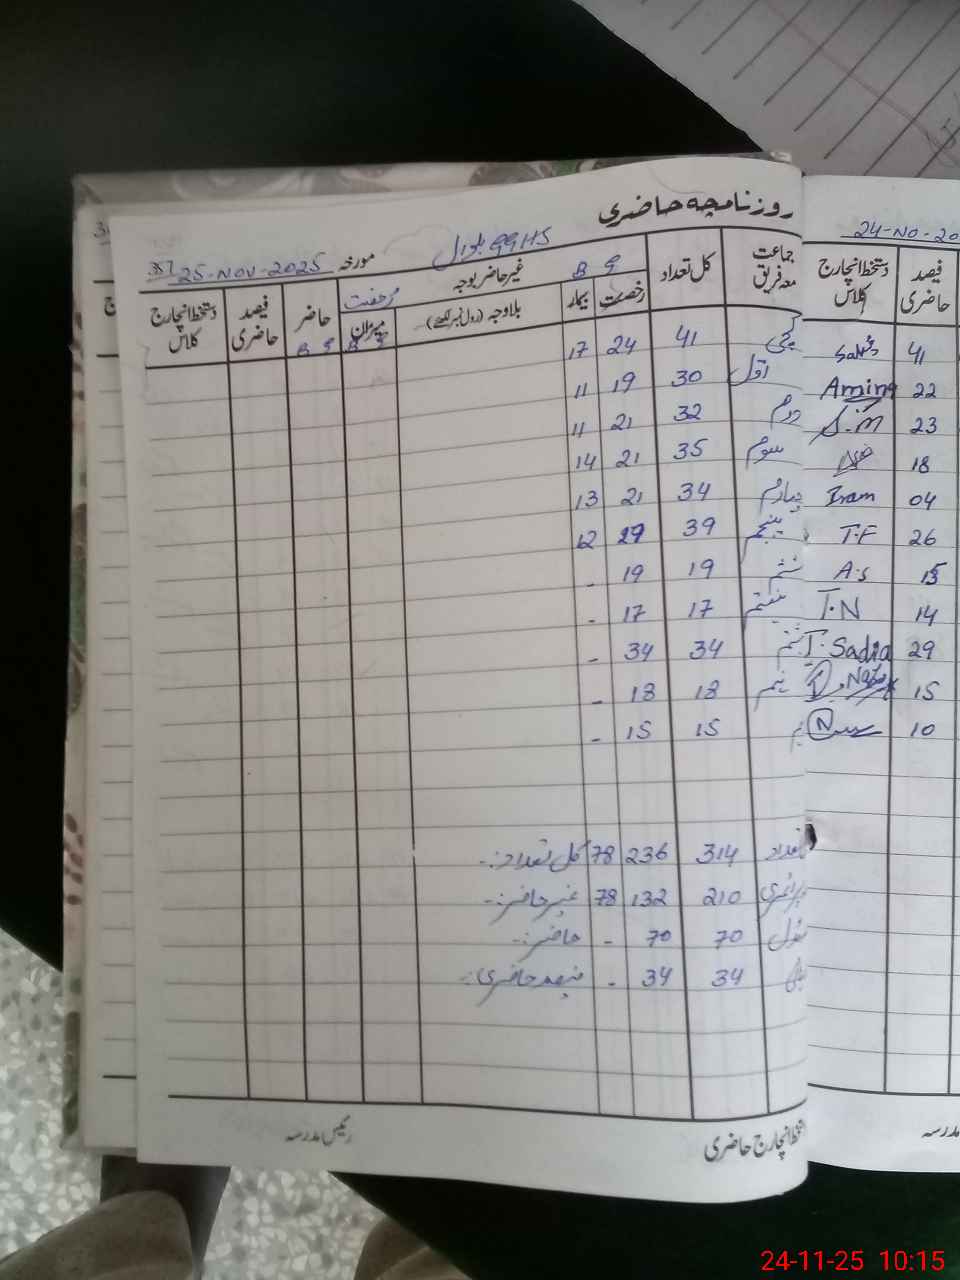 روزنامچہ حاضری
GGHS
مورخہ 25-NOV-2025
جماعت معہ فریق
کل تعداد
غیر حاضر بوجہ
G B
رخصت
بیمار
بلا وجہ (رول نمبر لکھیے)
میزان
حاضر
G B
فیصد حاضری
دستخط انچارج کلاس
41 24 17
اول 30 19 11
دوم 32 21 11
سوم 35 21 14
چہارم 34 21 13
پنجم 39 29 12
ششم 19 19 -
ہفتم 17 17 -
ہشتم 34 34 -
نہم 18 18 -
15 15 -
تعداد 314 236 78 کل تعداد:-
پرائمری 210 132 78 غیر حاضر:-
مڈل 70 70 - حاضر:-
ہائی 34 34 - فیصد حاضری:-
دستخط انچارج حاضری
رئیس مدرسہ
24-NO-20
فیصد حاضری
دستخط انچارج کلاس
41
22 Amina
23 S.M
18
04 Iram
26 T.F
15 A.S
14 T.N
29 T.Sadia
15
10
مدرسہ
24-11-25 10:15